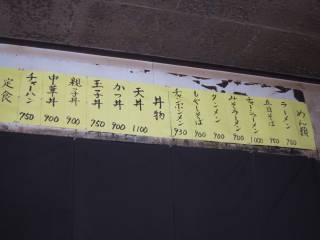 めん類
ラーメン 750
五目そば 950
チャーシューメン 1000
みそラーメン 900
タンメン 900
もやしそば 900
チャンポンメン 950
丼物
天丼 1100
かつ丼 900
玉子丼 750
親子丼 900
中華丼 900
チャーハン 750
定食